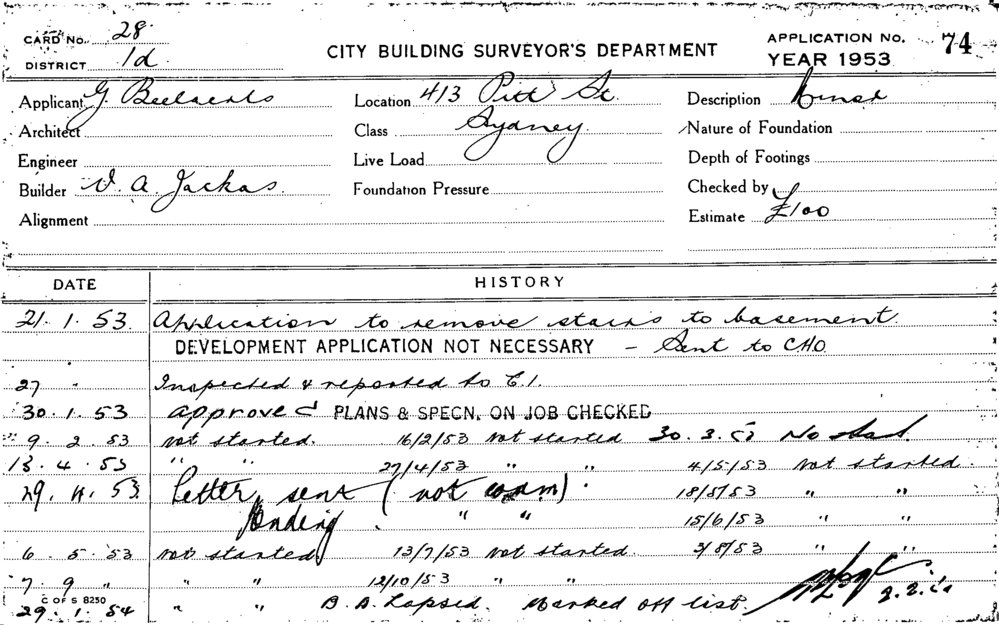 CARD No. 28
DISTRICT 1d
CITY BUILDING SURVEYOR'S DEPARTMENT
APPLICATION No. 74
YEAR 1953
Applicant G. Beelaerts Location 413 Pitt St. Description Minor
Architect Class Sydney Nature of Foundation
Engineer Live Load Depth of Footings
Builder V. A. Jackas Foundation Pressure Checked by
Alignment Estimate £100
DATE HISTORY
21. 1. 53 Application to remove stairs to basement.
DEVELOPMENT APPLICATION NOT NECESSARY – Sent to C.H.O.
27 " Inspected & reported to C.I.
30. 1. 53 Approved PLANS & SPECN. ON JOB CHECKED
9. 2. 53 Not started. 16/2/53 Not started 30. 3. 53 No start.
13. 4. 53 " " 27/4/53 " " 4/5/53 Not started.
29. 4. 53 Letter sent (not comm). 18/5/53 " "
Pending " " 15/6/53 " "
6. 5. 53 Not started 13/7/53 Not started. 3/8/53 " "
7. 9 " " " 12/10/53 " "
C OF S 8250
29. 1. 54 " " B.A. Lapsed. Marked off list.